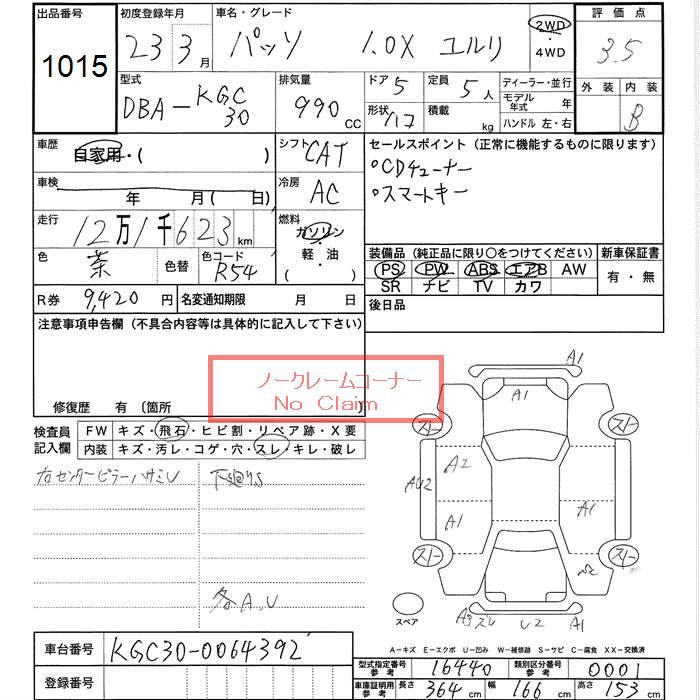 出品番号
1015
初度登録年月
23 3月
車名・グレード
パッソ 1.0X ユルリ
2WD
・
4WD
評価点
3.5
型式
DBA-KGC30
排気量
990 CC
ドア 5
定員 5人
形状 ハコ
積載 kg
ディーラー・並行
モデル年式 年
ハンドル 左・右
外装 内装
B
車歴
自家用・( )
シフト CAT
セールスポイント (正常に機能するものに限ります)
・CDチューナー
・スマートキー
車検
年 月(日)
冷房 AC
走行
12万1千623km
燃料
ガソリン
・
軽・油
( )
色 茶 色替
色コード R54
装備品 (純正品に限り○をつけてください)
新車保証書
PS PW ABS エアB AW
SR ナビ TV カワ
有・無
R券 9,420円
名変通知期限 月 日
後日品
注意事項申告欄 (不具合内容等は具体的に記入して下さい)
ノークレームコーナー
No Claim
修復歴 有 〔箇所 〕
検査員記入欄
FW キズ・飛石・ヒビ割・リペア跡・X要
内装 キズ・汚レ・コゲ・穴・スレ・キレ・破レ
右センターピラーハサミU
下廻りS
各A.U
A1
A1
スリー スリー
A2
AU2
A1 A1
スリー スリー
スペア
U2 A1
A-キズ E-エクボ U-凹み W-補修跡 S-サビ C-腐食 XX-交換済
車台番号 KGC30-0064392
登録番号
型式指定番号 参考 16440
類別区分番号 参考 0001
車庫証明用 参考
長さ 364cm
幅 166cm
高さ 153cm